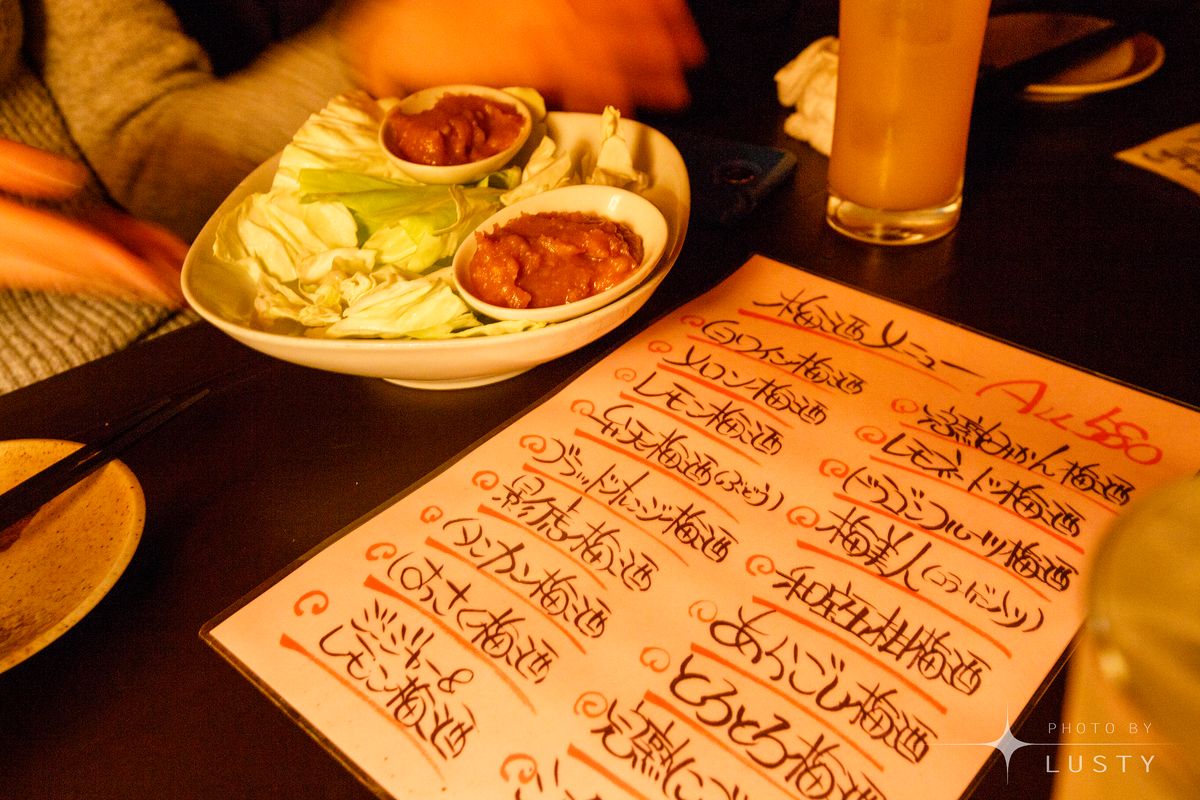 梅酒メニュー
All 580
白ワイン梅酒
メロン梅酒
レモン梅酒
梅酒(ぶどう)
ブラッドオレンジ梅酒
梅酒
タンカン梅酒
はっさく梅酒
ジンジャー&
レモン梅酒
完熟みかん梅酒
レモネード梅酒
ドラゴンフルーツ梅酒
梅美人
梅酒
あらごし梅酒
とろとろ梅酒
完熟に
PHOTO BY
LUSTY